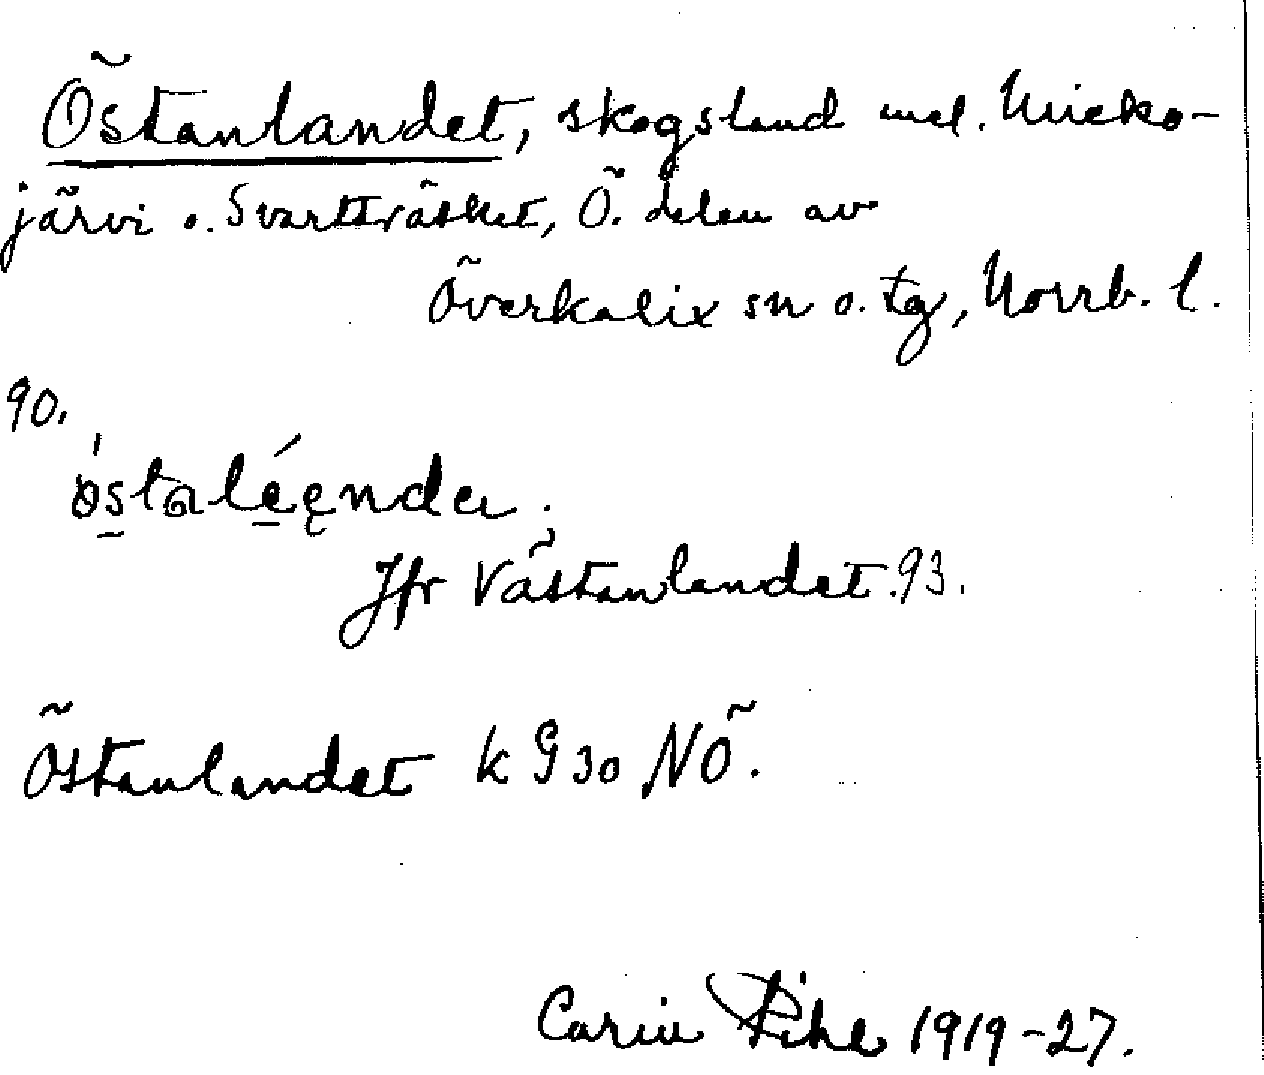 Östanlandet, skogsland mel. Mieko-
järvi o. Svartträsket, Ö. delen av
Överkalix sn o. tg, Norrb. l.
90.
Jfr Västanlandet 93.
Östanlandet k G 30 NÖ.
Carin Pihl 1919-27.